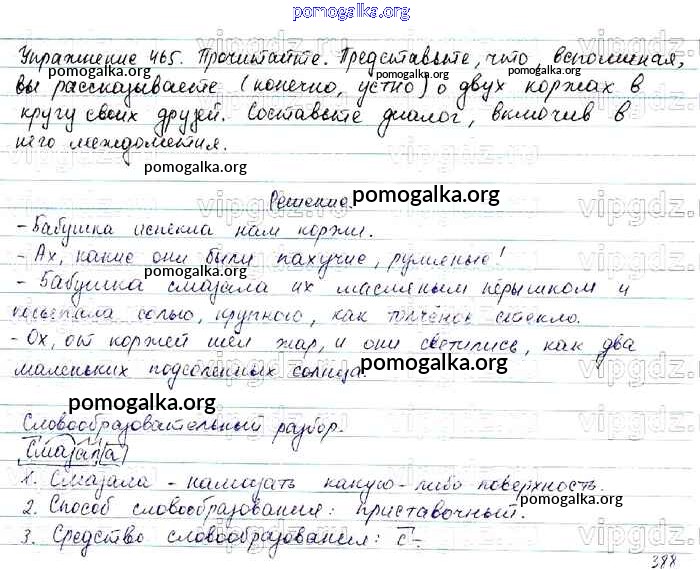 pomogalka.org
Упражнение 465. Прочитайте. Представьте, что вспоминая,
вы рассказываете (конечно, устно) о двух коржах в
кругу своих друзей. Составьте диалог, включив в
него междометия.
pomogalka.org
pomogalka.org
pomogalka.org
Решение. pomogalka.org
- Бабушка испекла нам коржи.
- Ах, какие они были пахучие, румяные!
pomogalka.org
pomogalka.org
- Бабушка смазала их масляным пёрышком и
посыпала солью, крупною, как толчёное стекло.
- Ох, от коржей шёл жар, и они светились, как два
маленьких подсоленных солнца. pomogalka.org
pomogalka.org
Словообразовательный разбор.
Смазал(а) pomogalka.org
1. Смазала - намазать какую-либо поверхность.
2. Способ словообразования: приставочный. pomogalka.org
3. Средство словообразования: с-
pomogalka.org
388